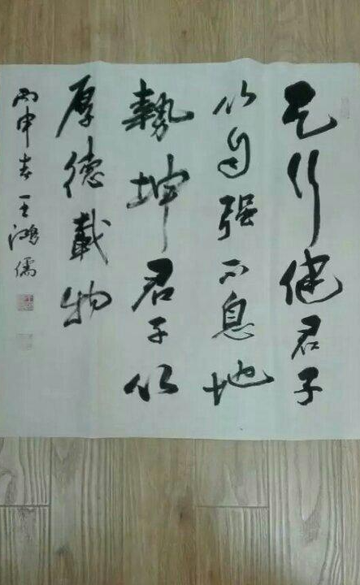 天行健君子
以自强不息地
势坤君子以
厚德載物
丙申春王鴻儒